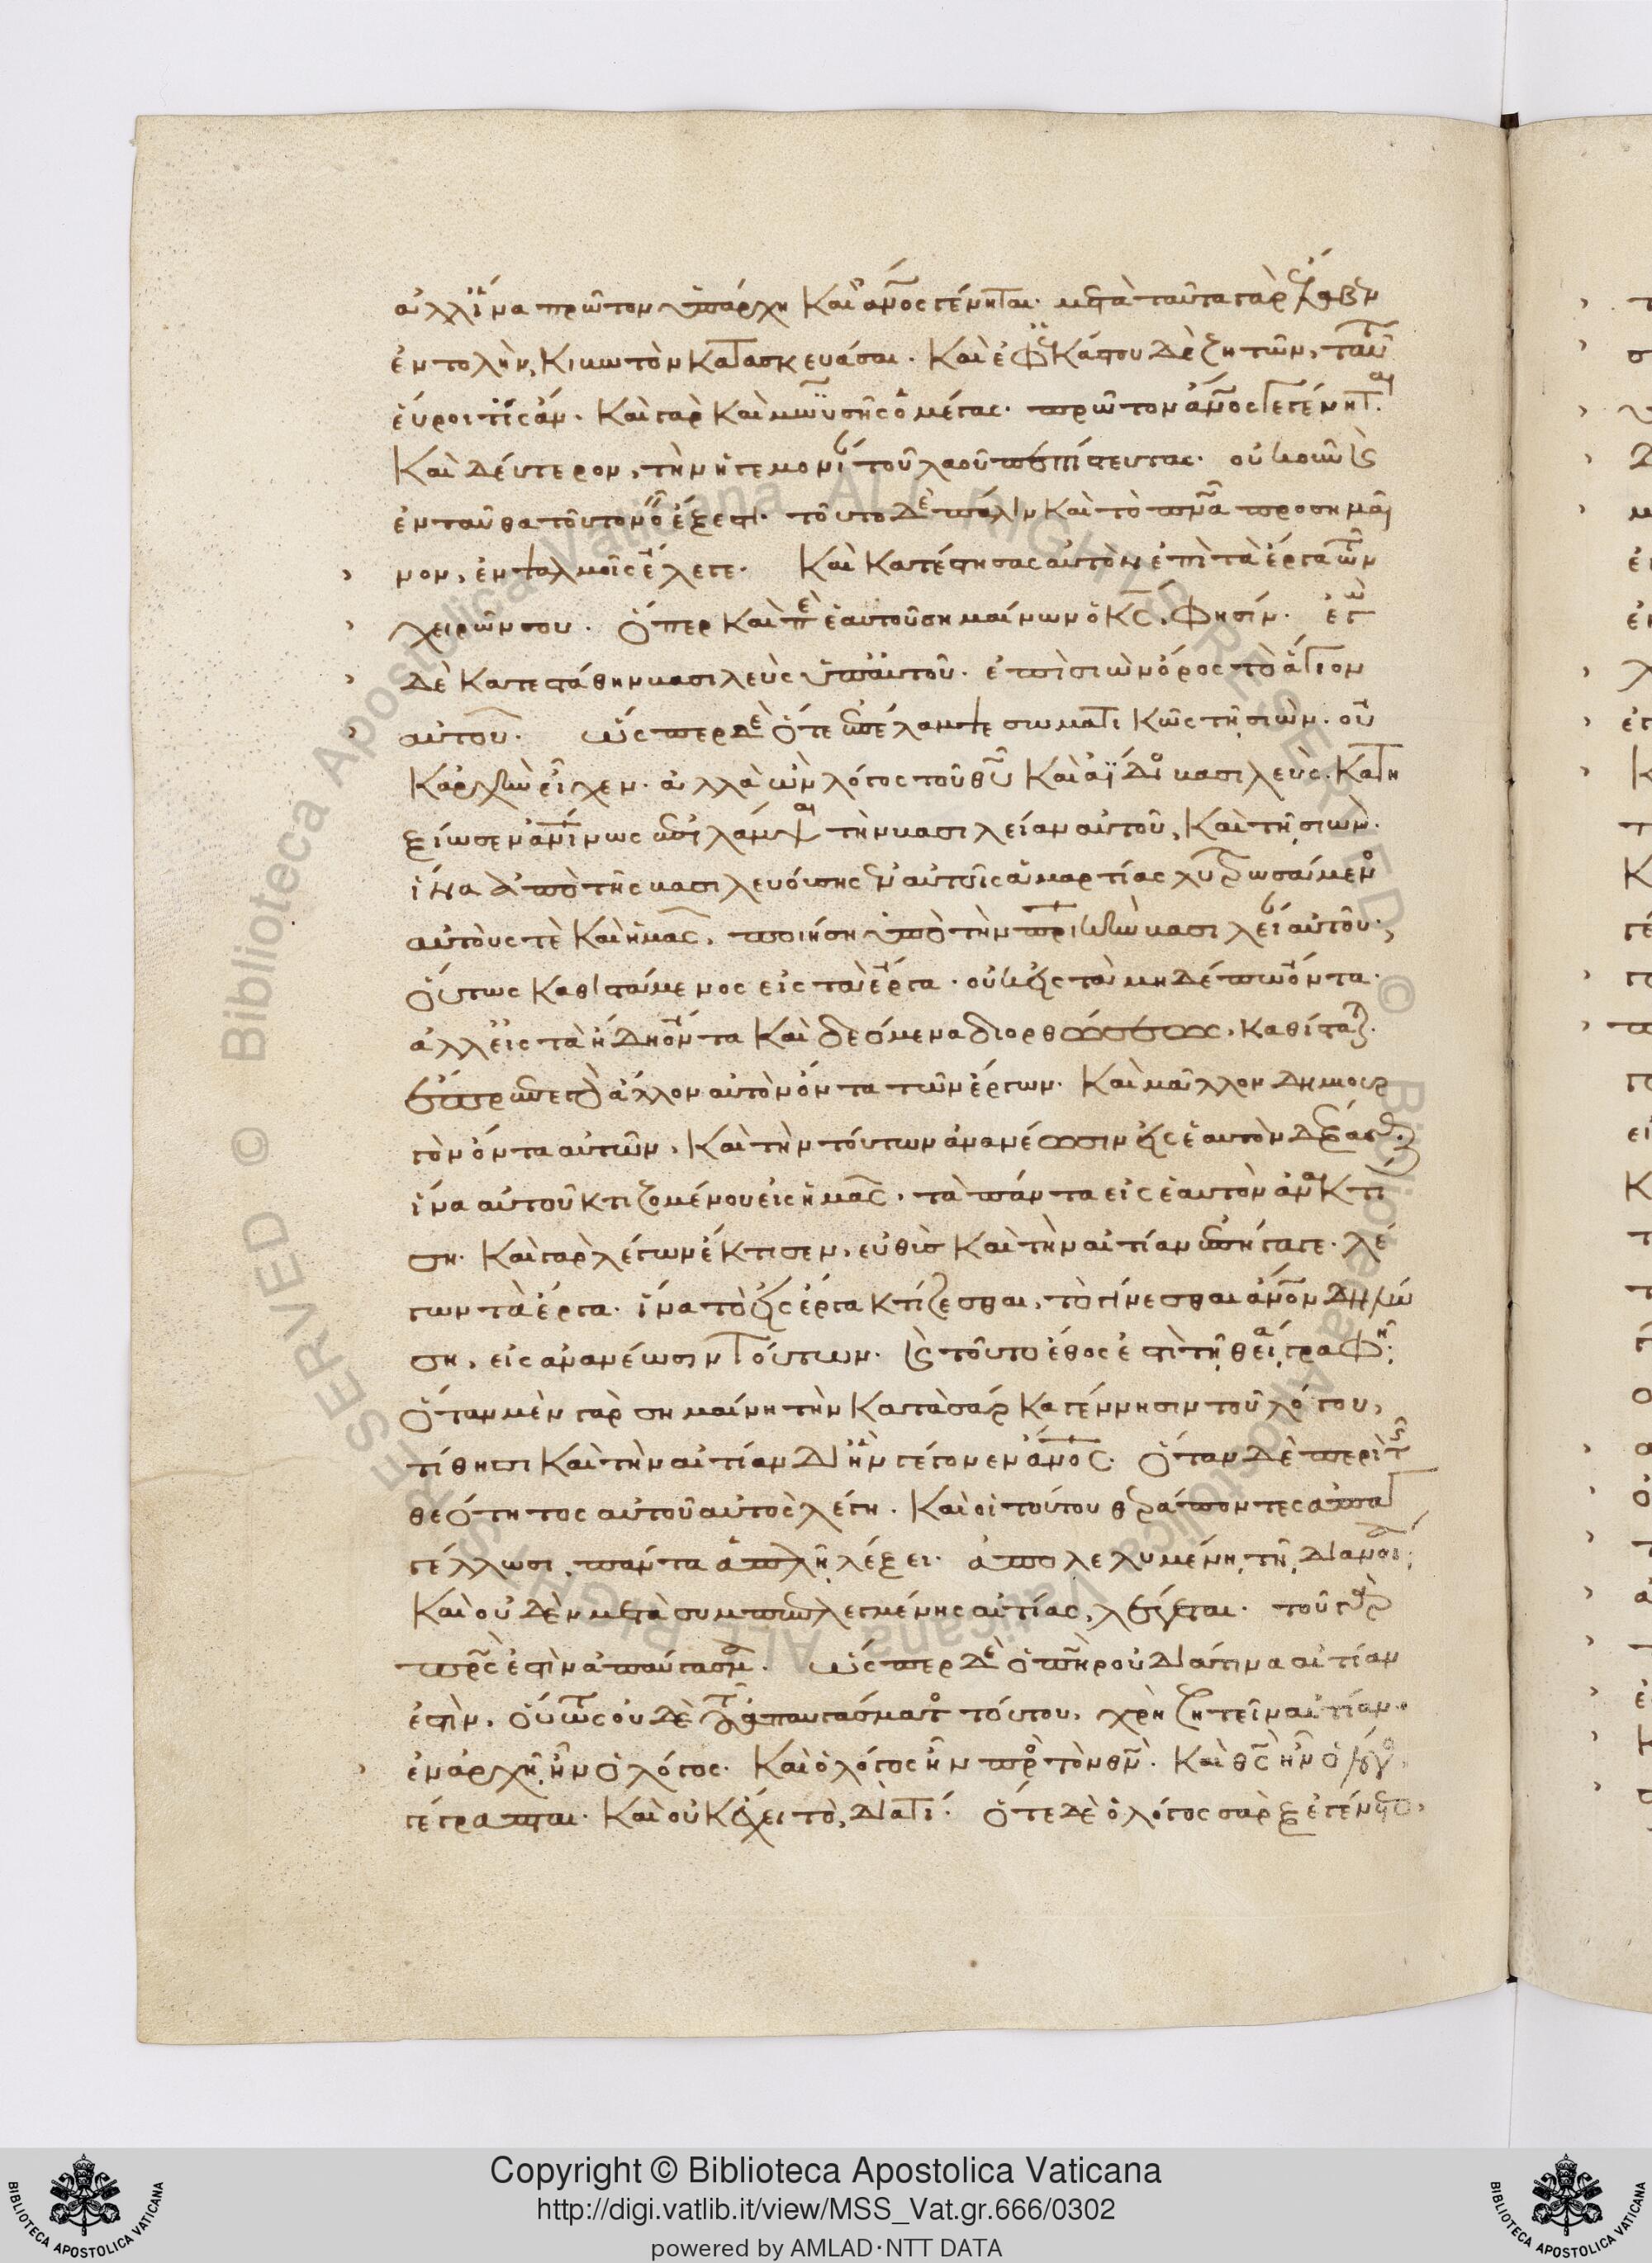 ἀλλ ἵνα πρῶτον ὑπάρχη καὶ ἄνος γένηται· μετὰ ταῦτα γὰρ ἔλαβεν
ἐντολὴν, κιβωτὸν κατασκευάσαι. καὶ ἐφ ἑκάστου δὲ ζητῶν, ταῦτ
εὕροι τίς ἄν. καὶ γὰρ καὶ μωϋσῆς ὁ μέγας· πρῶτον ἄνος γεγένηται.
καὶ δεύτερον, τὴν ἡγεμονίαν τοῦ λαοῦ πεπίστευται. οὐκοῦν καὶ
ἐνταῦθα τοῦτο νοεῖν ἔξεστι. τοῦτο δὲ πάλιν καὶ τὸ πνα προσημαῖ
νον, ἐν ψαλμοῖς ἔλεγε. καὶ κατέστησας αὐτὸν ἐπὶ τὰ ἔργα τῶν
χειρῶν σου. ὅπερ καὶ περὶ ἑαυτοῦ σημαίνων ὁ κς, φησίν. ἐγὼ
δὲ κατεστάθην βασιλεὺς ὑπ αὐτοῦ. ἐπὶ σιὼν ὄρος τὸ ἅγιον
αὐτοῦ. ὥσπερ δὲ ὅτε ἐπέλαμψε σωματικῶς τῇ σιὼν. οὐ
κ ἀρχὴν εἶχεν. ἀλλὰ ὢν λόγος τοῦ θυ καὶ ἀΐδιος βασιλεὺς. κατη
ξίωσεν ἀνίνως ἐπιλάμψαι τὴν βασιλείαν αὐτοῦ, καὶ τῇ σιὼν.
ἵνα ἀπὸ τῆς βασιλευούσης ἐν αὐτοῖς ἁμαρτίας λυτρωσάμενος
αὐτοὺς τὲ καὶ ἡμᾶς, ποιήση ὑπὸ τὴν πρικὴν βασιλείαν αὐτοῦ·
οὕτως καθιστάμενος εἰς τὰ ἔργα. οὐκ εἰς τὰ μηδέπω ὄντα.
ἀλλ εἰς τὰ ἤδη ὄντα καὶ δεόμενα διορθώσεως, καθίσταται.
ἀλλον αὐτὸν ὄντα τῶν ἔργων. καὶ μᾶλλον δημιουρ
γὸν ὄντα αὐτῶν, καὶ τὴν τούτων ἀνανέωσιν εἰς ἑαυτὸν
ἵνα αὐτοῦ κτιζομένου εἰς ἡμᾶς, τὰ πάντα εἰς ἑαυτὸν ἀνακτί
ση. καὶ γὰρ λέγων ἔκτισεν, εὐθὺς καὶ τὴν αἰτίαν ἐπήγαγε. λέ
γων τὰ ἔργα. ἵνα τὸ εἰς ἔργα κτίζεσθαι, τὸ γίνεσθαι ἄνον δηλώ
ση, εἰς ἀνανέωσιν τούτων. καὶ τοῦτο ἔθος ἐστὶ τῇ θείᾳ γραφῇ.
ὅταν μὲν γὰρ σημαίνη τὴν κατὰ σάρκα γέννησιν τοῦ λόγου,
τίθησι καὶ τὴν αἰτίαν δι ἣν γέγονεν ἄνος. ὅταν δὲ περὶ τῆς
θεότητος αὐτοῦ αὐτὸς λέγη. καὶ οἱ τούτου θεράποντες ἀπαγ
γέλλωσι, πάντα ἁπλῇ λέξει. ἀπολελυμένη τῇ διανοίᾳ.
καὶ οὐδὲν μετὰ συμπεπλεγμένης αἰτίας, λέγεται. τοῦ γὰρ
πρς ἐστὶν ἀπαύγασμα. ὥσπερ δὲ ὁ πηρ οὐ διά τινα αἰτίαν
ἐστὶν, οὕτως οὐδὲ τοῦ ἀπαυγάσματος τούτου, χρὴ ζητεῖν αἰτίαν.
ἐν ἀρχῇ ἦν ὁ λόγος. καὶ ὁ λόγος ἦν πρὸς τὸν θν. καὶ θς ἦν ὁ λόγος,
γέγραπται. καὶ οὐκ ἔχει τὸ, διατί. ὅτε δὲ ὁ λόγος σὰρξ ἐγένετο,
Copyright © Biblioteca Apostolica Vaticana
http://digi.vatlib.it/view/MSS_Vat.gr.666/0302
powered by AMLAD·NTT DATA